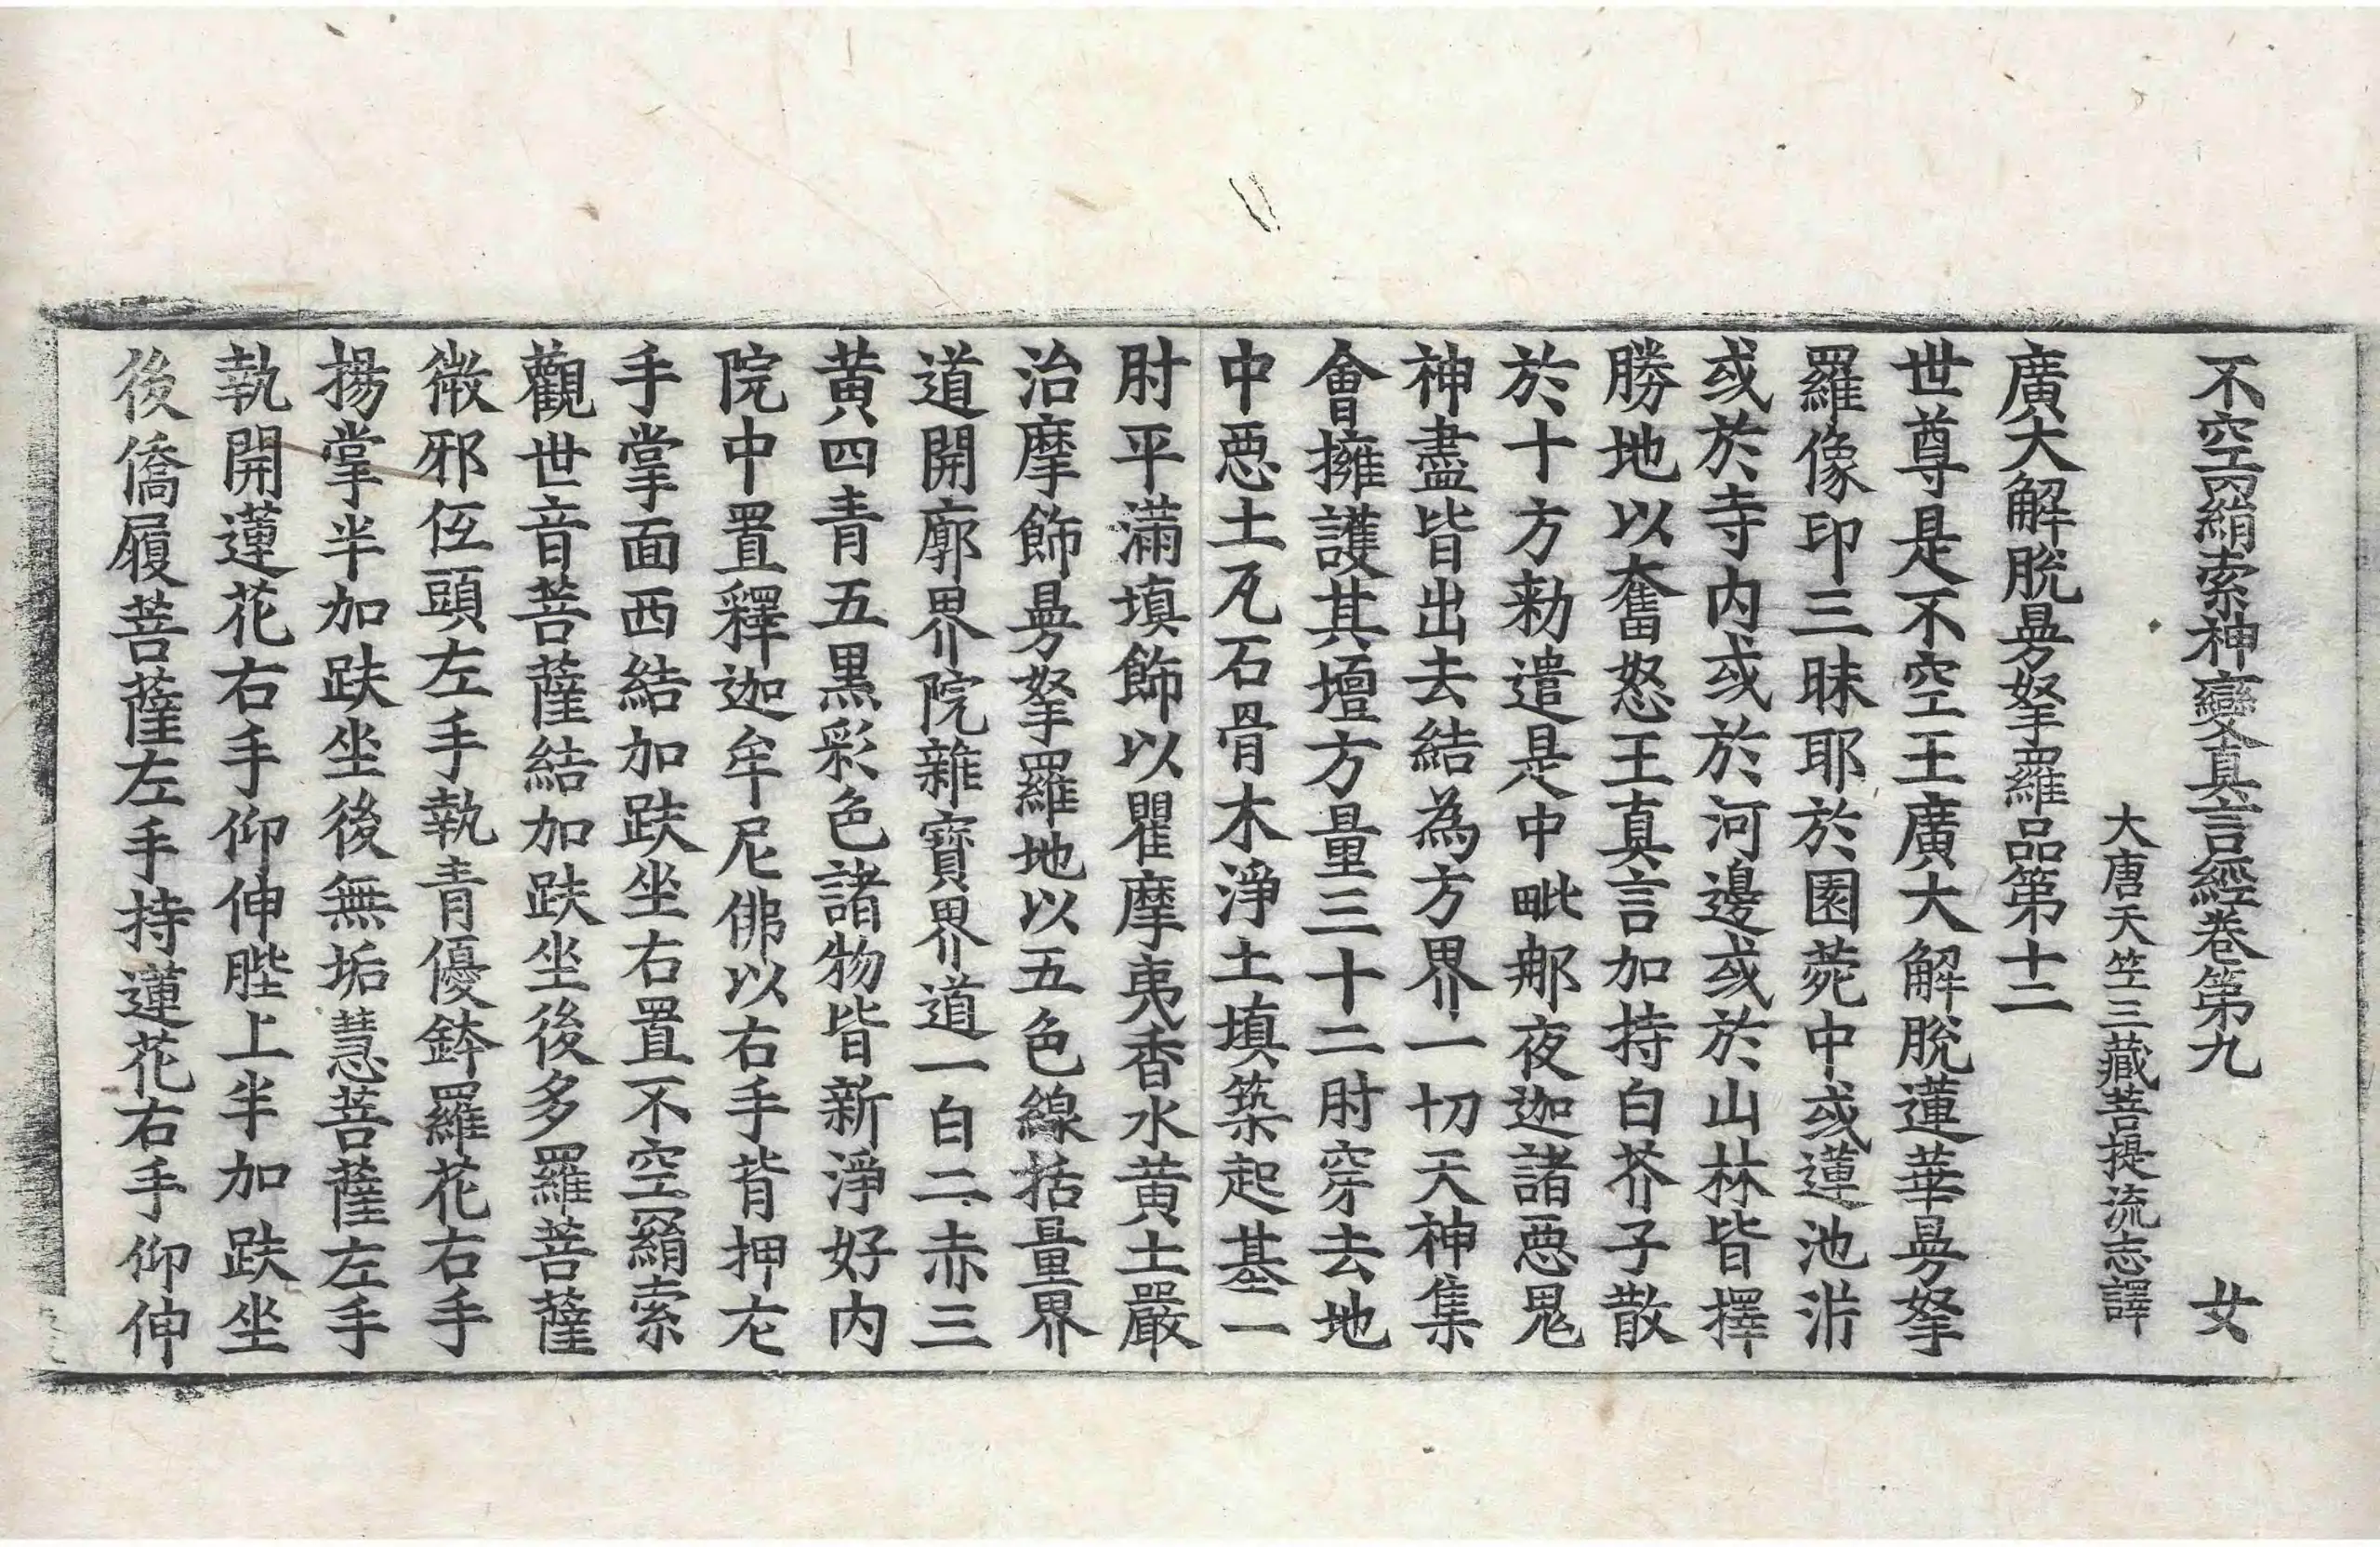 不空羂索神變真言經卷第九 女
大唐天竺三藏菩提流志譯
廣大解脫曼拏羅品第十二
世尊是不空王廣大解脫蓮華曼拏
羅像印三昧耶於園菀中或蓮池泮
或於寺內或於河邊或於山林皆擇
勝地以奮怒王真言加持白芥子散
於十方勑遣是中毗那夜迦諸惡鬼
神盡皆出去結為方界一切天神集
會擁護其壇方量三十二肘穿去地
中惡土瓦石骨木淨土填築起基一
肘平滿填飾以瞿摩夷香水黃土嚴
治摩飾曼拏羅地以五色線括量界
道開廓界院雜寶界道一白二赤三
黃四青五黑彩色諸物皆新淨好內
院中置釋迦牟尼佛以右手背押左
手掌面西結加趺坐右置不空羂索
觀世音菩薩結加趺坐後多羅菩薩
微邪低頭左手執青優鉢羅花右手
揚掌半加趺坐後無垢慧菩薩左手
執開蓮花右手仰伸䏶上半加趺坐
後僑履菩薩左手持蓮花右手仰伸